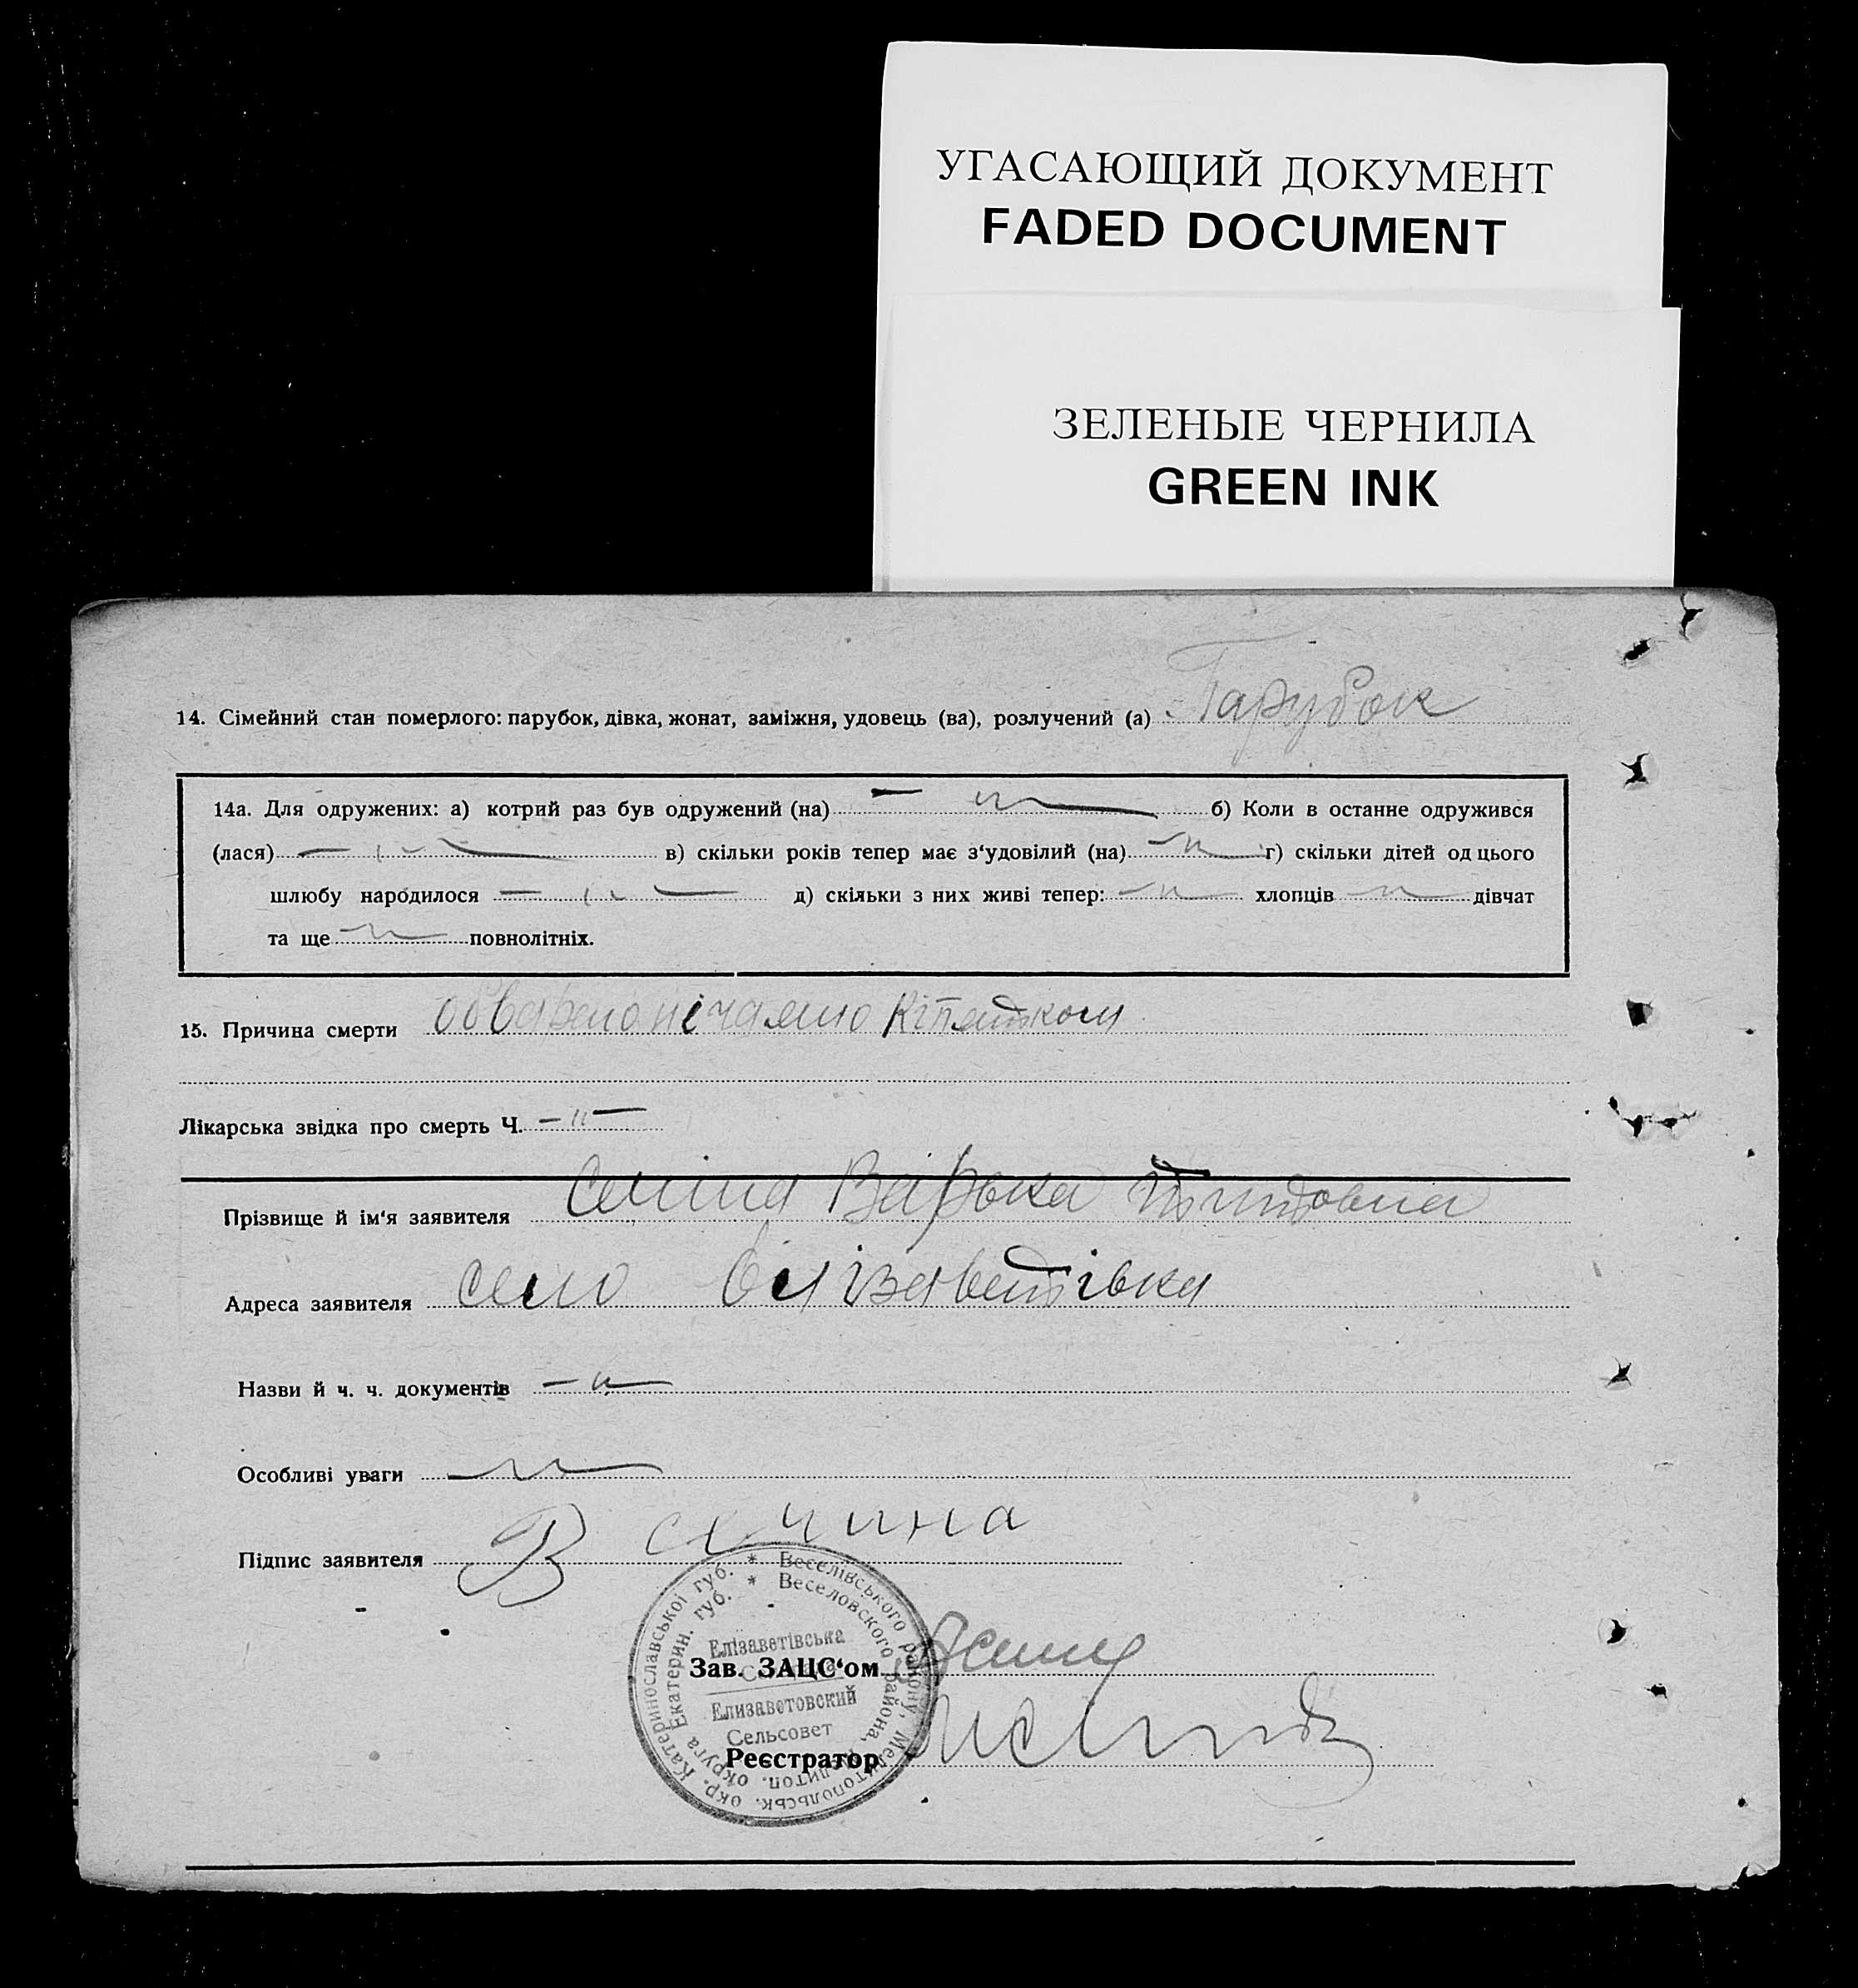 УГАСАЮЩИЙ ДОКУМЕНТ
FADED DOCUMENT
ЗЕЛЕНЫЕ ЧЕРНИЛА
GREEN INK
14. Сімейний стан померлого: парубок, дівка, жонат, заміжня, удовець (ва), розлучений (а) Парубок
14а. Для одружених: а) котрий раз був одружений (на) — „ — б) Коли в останне одружився
(лася) — „ — в) скільки років тепер має з‘удовілий (на) — „ — г) скільки дітей од цього
шлюбу народилося — „ — д) скільки з них живі тепер: — „ — хлопців — „ — дівчат
та ще — „ — повнолітніх.
15. Причина смерти обварено нечаяно Кіпятком
Лікарська звідка про смерть Ч. — „ —
Прізвище й ім‘я заявителя Сьоміна Варька Титовна
Адреса заявителя село Єлізаветівка
Назви й ч. ч. документів — „ —
Особливі уваги — „ —
Підпис заявителя В
Веселівського району, Мелітопольськ. окр. Катеринославської губ. *
Веселовского района, Мелитоп. округа Екатерин. губ. *
Елізаветівська
Зав. ЗАЦС‘ом
Елизаветовский
Сельсовет
Реєстратор